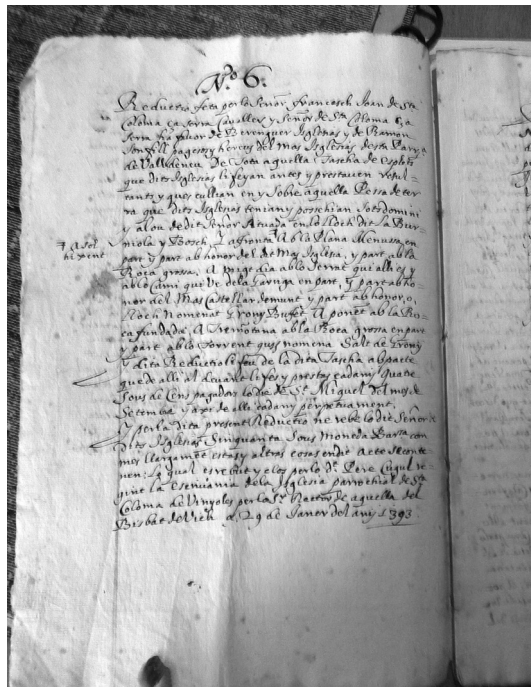 N.º 6.
Reductio feta per lo Señor Francesch Joan de Sta
Coloma Ça serra Cavaller y Señor de Sta Coloma Ça
serra fra favor de Berenguer Isglesias y de Ramon
son fill pagesos y hereus del mas Isglesias de sta Parrya
de Valldeneu De tota aquella Tascha de Esplets
que dits Isglesias li feyan antes y prestaven resul-
tants y ques cullian en y sobre aquella Pessa de ter
ra que dits Isglesias tenian y possehian sots domini
y alou de dit Señor Atuada en lo lloch dit la Bur-
niola y Bosch, Y afronta ablo Plana Menusa en
a Sol
hixent
part y part ab honor del dit Mas Isglesia, y part abla
Roca grossa, A Mitg dia ablo Serrat qui alli es y
ablo Cami que ve de la Garriga en part, y part ab ho-
nor del Mas Castellar demunt y part ab honor, o,
lloch nomenat Trony Bufet A ponet abla Ro-
ca fundada, A Tremontana abla Roca grossa en part
y part ablo Torrent ques nomena Salt de Trony
Y dita Reductio li feu de la dita Tascha ab pacte
que de alli al devant li fes y prestas cada any quatre
sous de Cens pagadors lo die de St Miquel del mes de
Setembre y axi de alli cada any perpetuament,
Y per la dita present Reductio ne rebe lo dit Señor de
dits Isglesias Sinquanta sous moneda Barsa com
mes llargament estas y altras cosas en dit Acte se conte
nen: La qual es rebut y clos per lo Dr Pere Cugul re
gint la Escrivania dela Isglesia parrochial de Sta
Coloma de Vinyoles per lo Sr Rector de aquella del
Bisbat de Vich a 29 de Janer del any 1393.